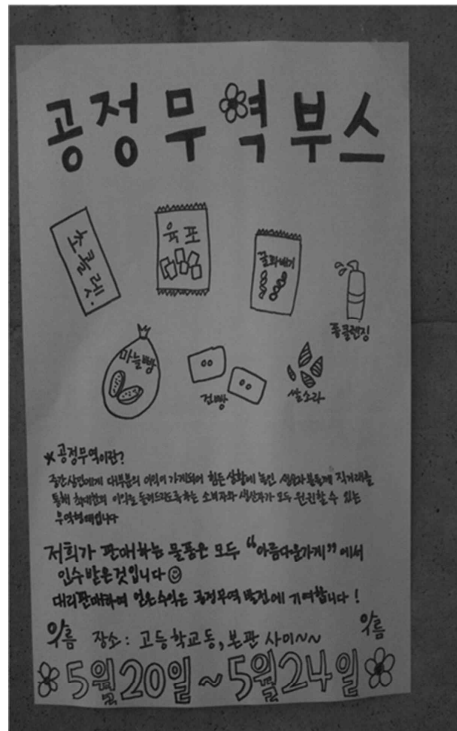 공정무역부스
초콜렛
육포
꿀꽈배기
폼클렌징
마늘빵
건빵
쌀소라
*공정무역이란?
중간상인에게 대부분의 이익이 가게되어 힘든 상황에 놓인 생산자분들께 직거래를
통해 최대한의 이익을 돌려드리도록하는 소비자와 생산자가 모두 윈윈할 수 있는
무역형태입니다
저희가 판매하는 물품은 모두 "아름다운가게"에서
인수받은것입니다☺
대리판매하여 얻은수익은 공정무역 발전에 기여합니다!
아름 장소: 고등학교동, 본관 사이~~ 아름
5월20일~5월24일